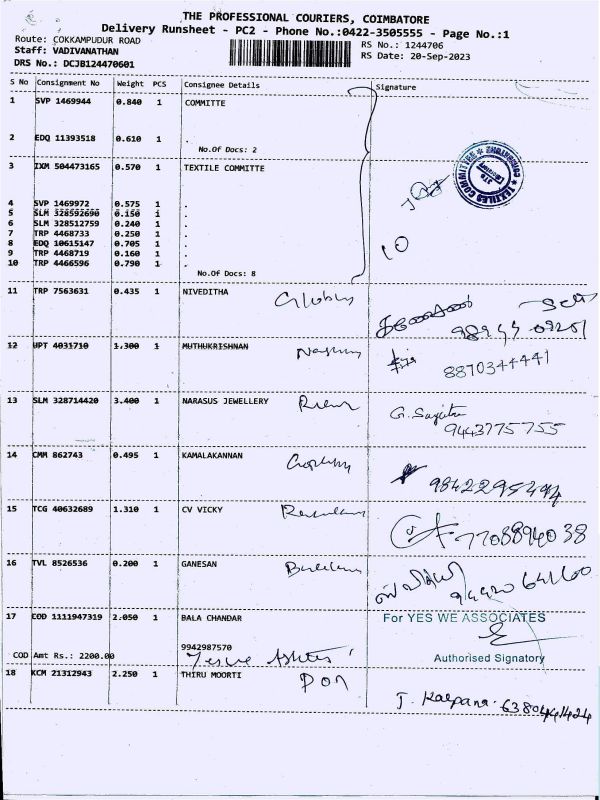 THE PROFESSIONAL COURIERS, COIMBATORE
Delivery Runsheet - PC2 - Phone No.:0422-3505555 - Page No.:1
Route: COKKAMPUDUR ROAD
RS No.: 1244706
Staff: VADIVANATHAN
RS Date: 20-Sep-2023
DRS No.: DCJB124470601
S No Consignment No Weight PCS Consignee Details Signature
1 SVP 1469944 0.840 1 COMMITTE
2 EDQ 11393518 0.610 1 .
No.Of Docs: 2
3 IXM 504473165 0.570 1 TEXTILE COMMITTE
TEXTILES COMMITTEE
4 SVP 1469972 0.575 1 .
5 SLM 328592690 0.150 1 .
6 SLM 328512759 0.240 1 .
7 TRP 4468733 0.250 1 .
8 EDQ 10615147 0.705 1 .
9 TRP 4468719 0.160 1 .
10 TRP 4466596 0.790 1 .
10
No.Of Docs: 8
11 TRP 7563631 0.435 1 NIVEDITHA
12 UPT 4031710 1.300 1 MUTHUKRISHNAN
8870344441
13 SLM 328714420 3.400 1 NARASUS JEWELLERY
9443775755
14 CMM 862743 0.495 1 KAMALAKANNAN
9842295494
15 TCG 40632689 1.310 1 CV VICKY
7708894038
16 TVL 8526536 0.200 1 GANESAN
17 COD 1111947319 2.050 1 BALA CHANDAR
For YES WE ASSOCIATES
9942987570
COD Amt Rs.: 2200.00
Authorised Signatory
18 KCM 21312943 2.250 1 THIRU MOORTI
T. Kalpana